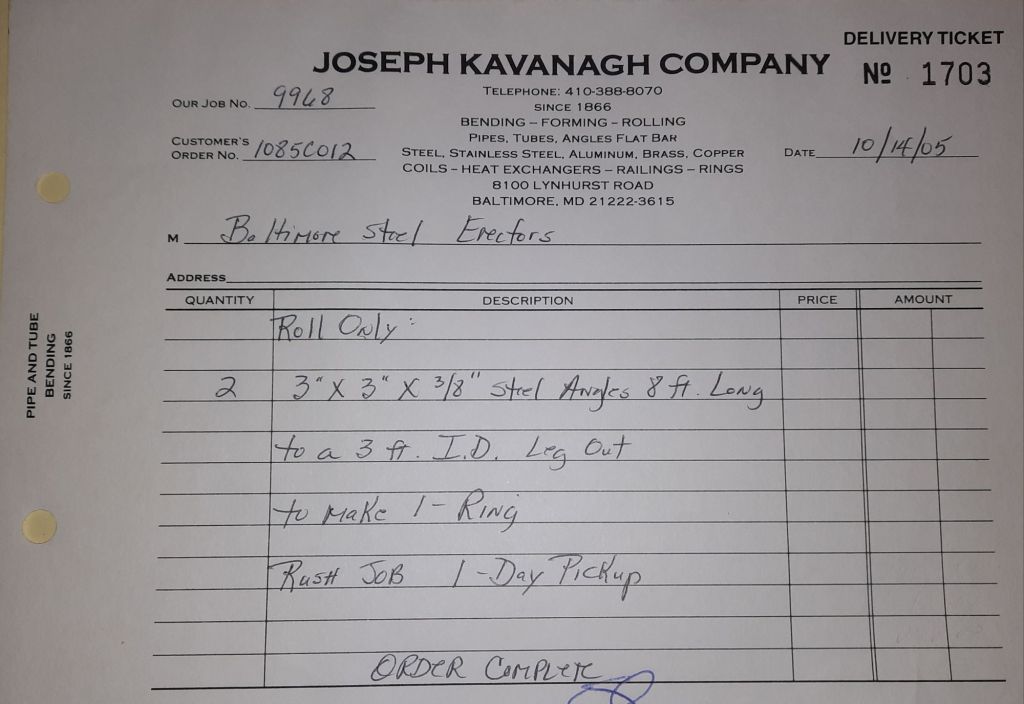 DELIVERY TICKET
JOSEPH KAVANAGH COMPANY
Nº 1703
TELEPHONE: 410-388-8070
OUR JOB NO. 9968
SINCE 1866
BENDING – FORMING – ROLLING
CUSTOMER'S
ORDER NO. 1085C012
PIPES, TUBES, ANGLES FLAT BAR
STEEL, STAINLESS STEEL, ALUMINUM, BRASS, COPPER
DATE 10/14/05
COILS – HEAT EXCHANGERS – RAILINGS – RINGS
8100 LYNHURST ROAD
BALTIMORE, MD 21222-3615
M Baltimore Steel Erectors
ADDRESS
QUANTITY DESCRIPTION PRICE AMOUNT
Roll Only:
2 3" X 3" X 3/8" Steel Angles 8 ft. Long
to a 3 ft. I.D. Leg Out
to Make 1 - Ring
Rush Job 1 - Day Pickup
ORDER COMPLETE
PIPE AND TUBE
BENDING
SINCE 1866